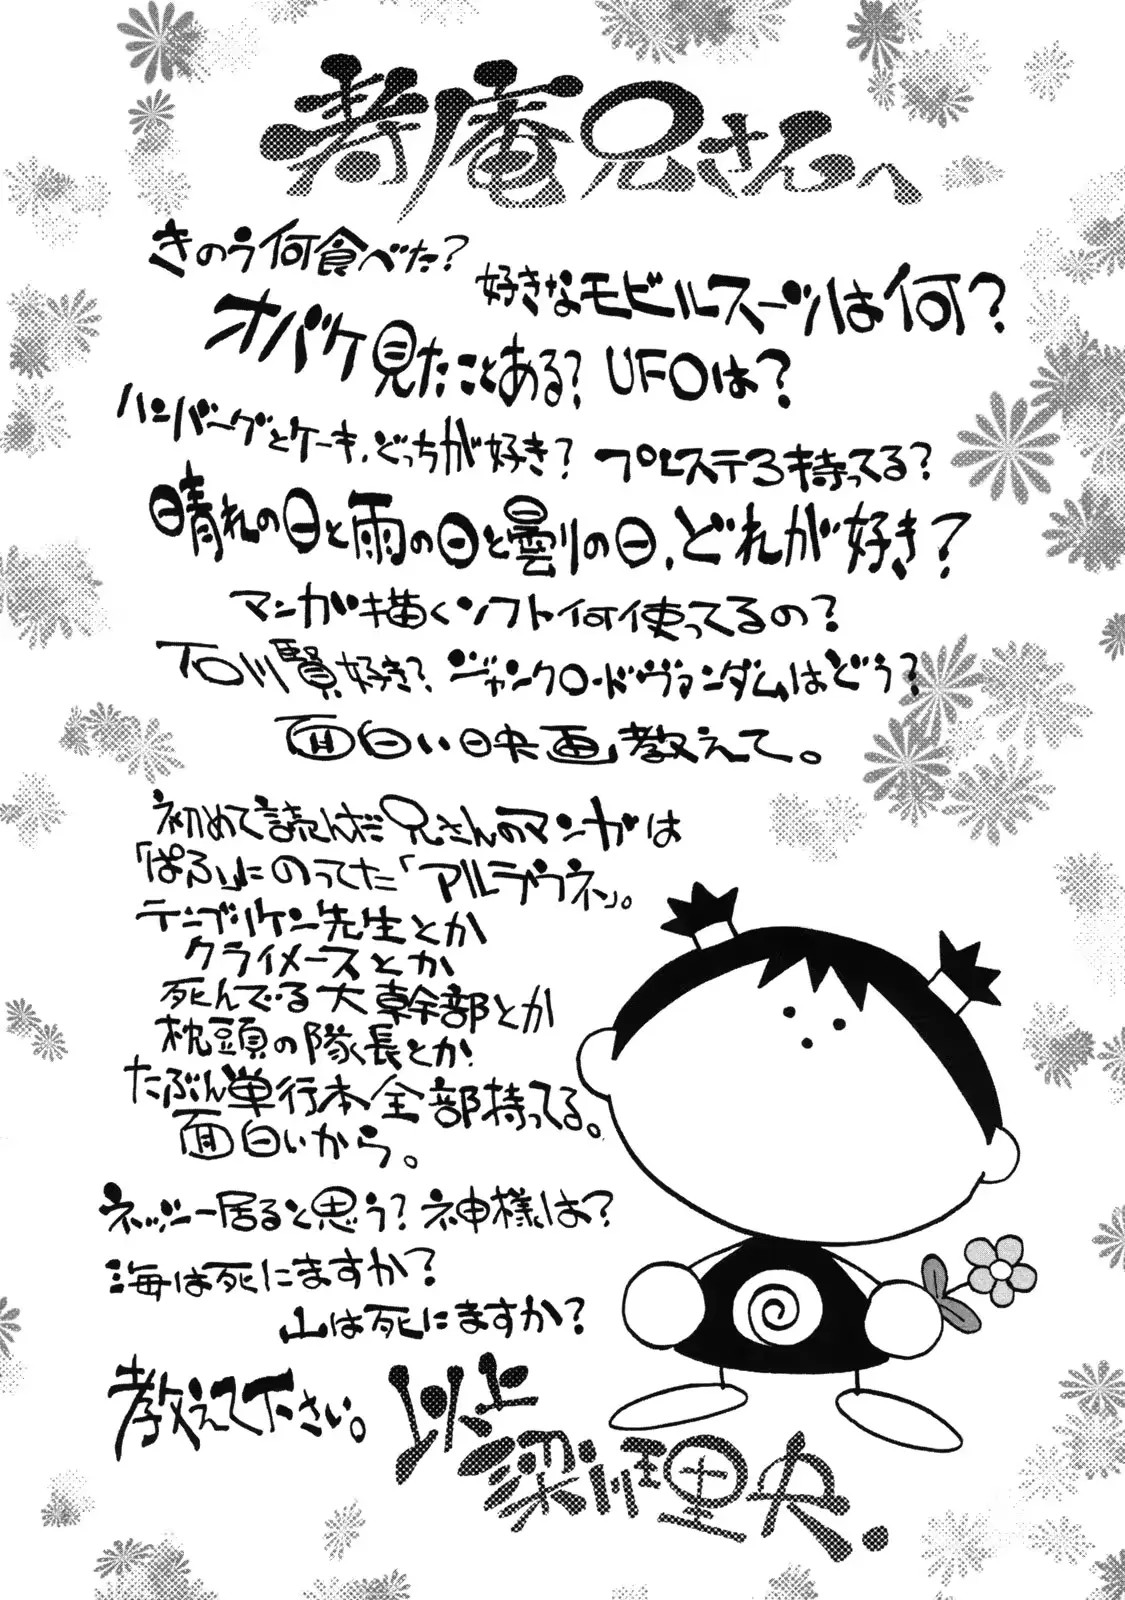 寿庵兄さんへ
きのう何食べた？
好きなモビルスーツは何？
オバケ見たことある？ UFOは？
ハンバーグとケーキ、どっちが好き？ プレステ3持ってる？
晴れの日と雨の日と曇りの日、どれが好き？
マンガ描くソフト何使ってるの？
石川賢好き？ ジャンクロードヴァンダムはどう？
面白い映画教えて。
初めて読んだ兄さんのマンガは
「ぱふ」にのってた「アルラウネ」。
テンプリケン先生とか
クライメースとか
死んでる大幹部とか
枕頭の隊長とか
たぶん単行本全部持ってる。
面白いから。
ネッシー居ると思う？ 神様は？
海は死にますか？
山は死にますか？
教えて下さい。
以上
梁川理央.